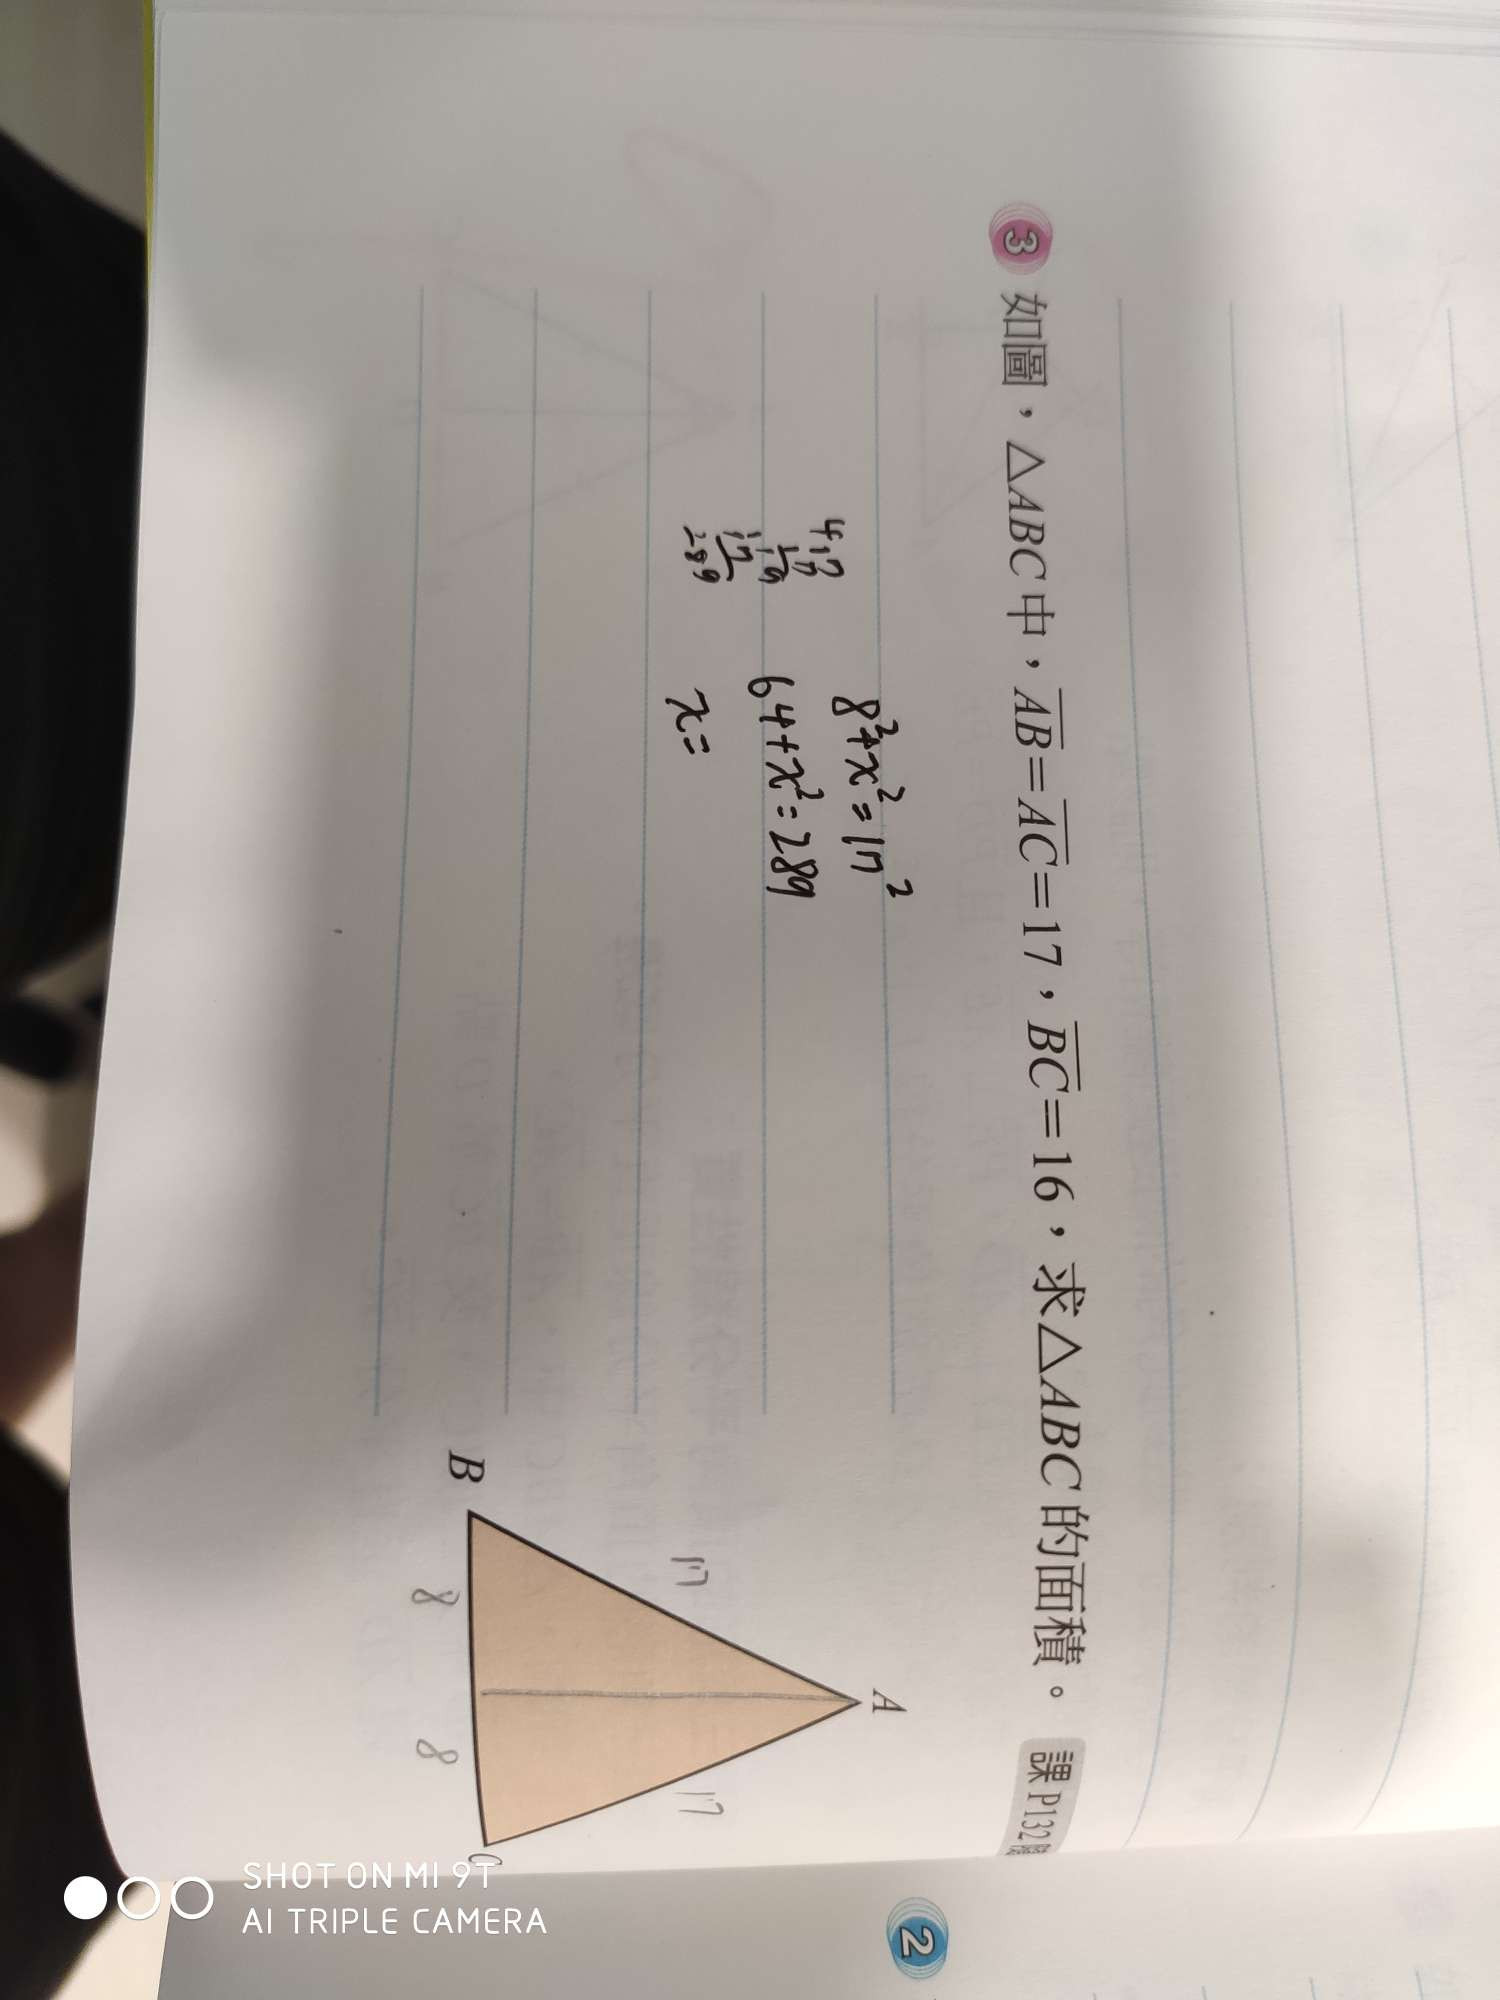 3 如圖，△ABC中，AB=AC=17，BC=16，求△ABC的面積。 課P132
8²+x²=17²
64+x²=289
x=
417
17
119
17
289
A
17
17
B
C
8
8
2
SHOT ON MI 9T
AI TRIPLE CAMERA